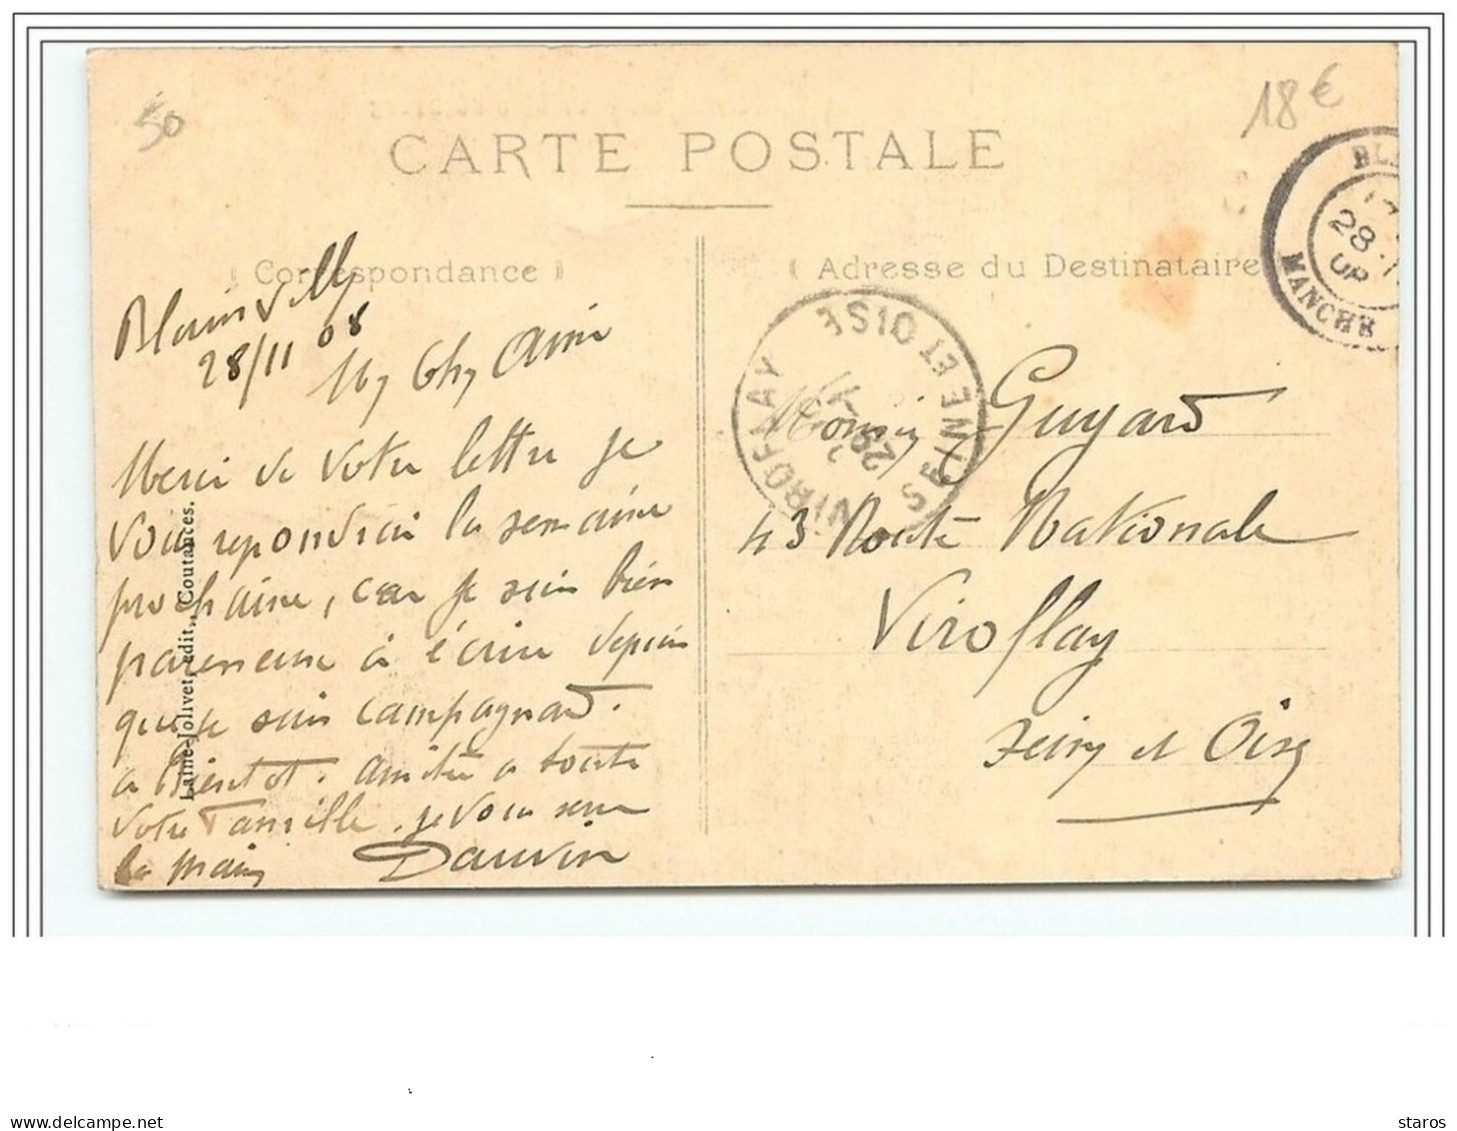 50
18 €
CARTE POSTALE
Correspondance
Adresse du Destinataire
BL
28
MANCHE
Blainville
28/11 08
My Chy Ami
Merci de Votre lettre je
Vous repondrai la semaine
prochaine, car je suis bien
paresseuse à écrire depuis
que je suis campagnard.
a Bientot. amitié a toute
Votre Famille. je Vous serre
la main Dauvin
Laîné-Jolivet, edit., Coutances.
VIROFLAY
SEINE ET OISE
Monsieur Guyard
43 Route Nationale
Viroflay
Seine et Oise
staros
delcampe.net